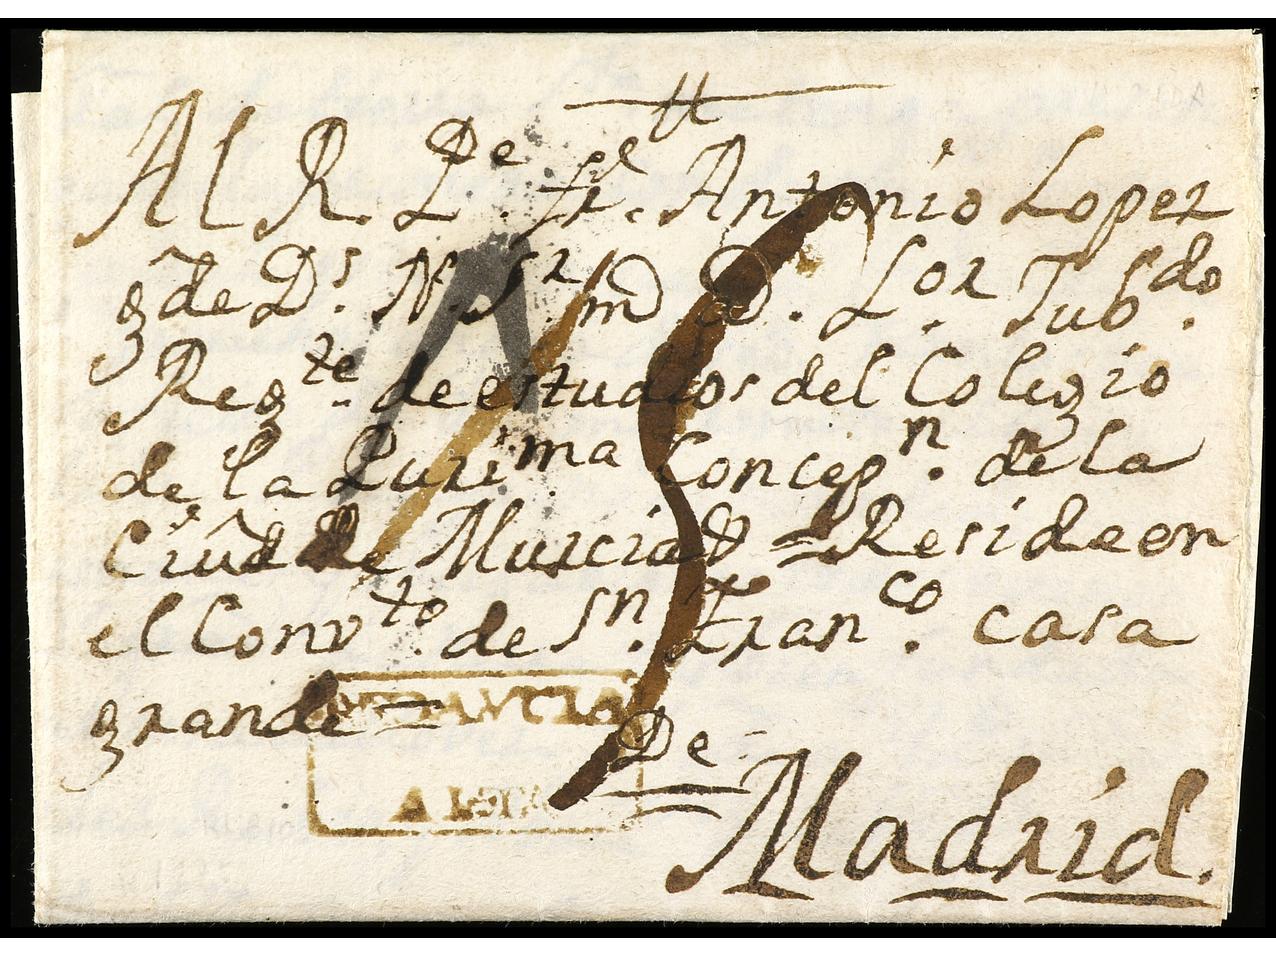 Al R. Pe. fr. Antonio Lopez
gde Ds. N. Sr
Lor. Jubdo.
Regte. de estudios del Colegio
de la Purima Concepn. de la
Ciud de Murcia = Reside en
el Convto. de Sn. Franco. casa
grande =
De
Madrid.